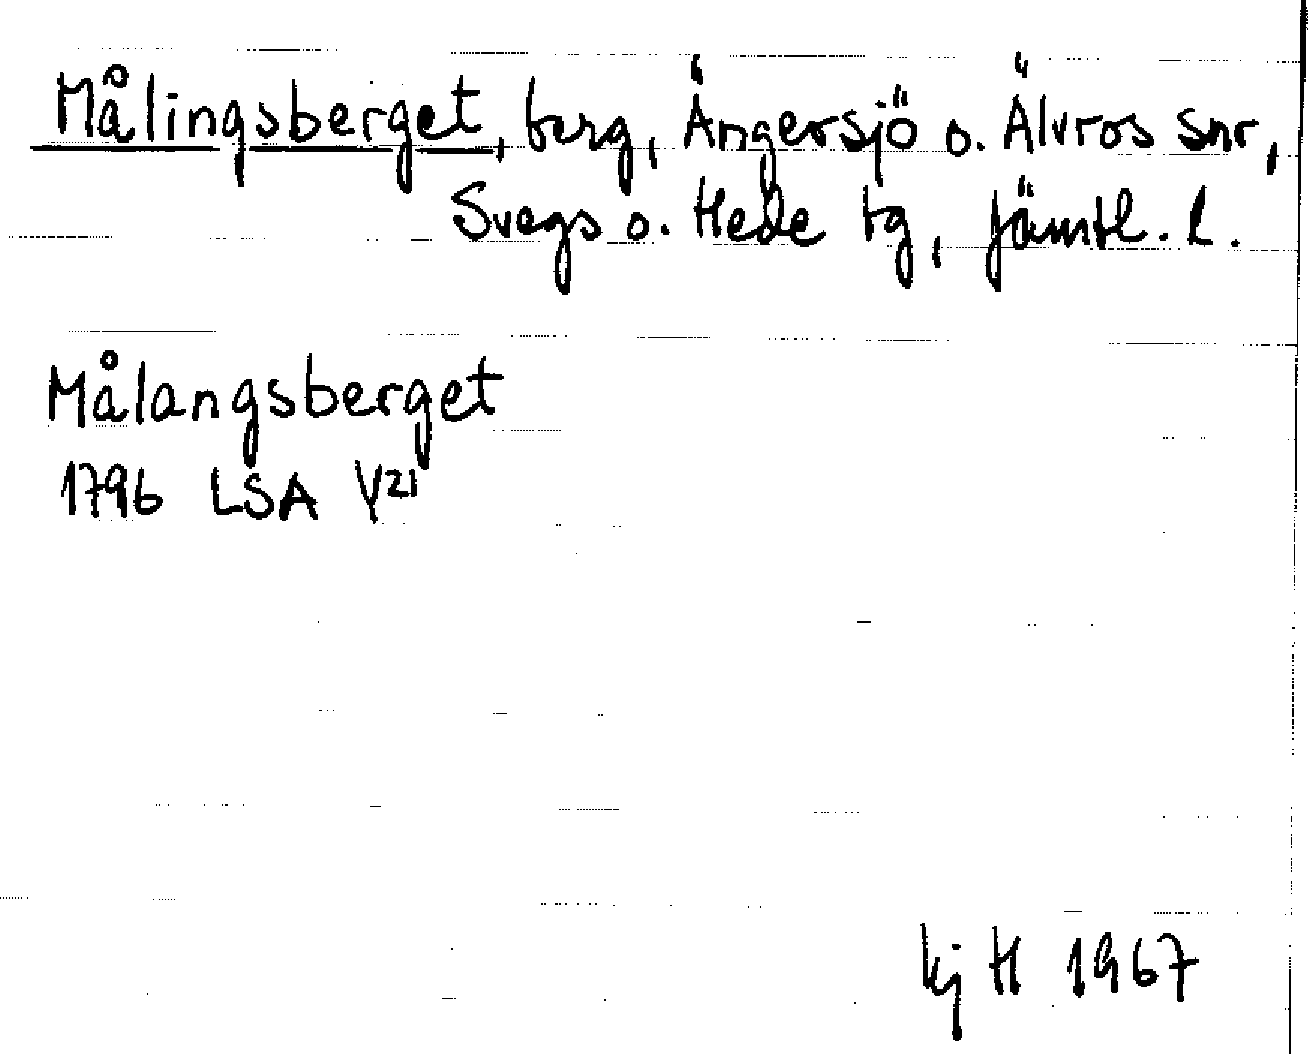 Målingsberget, berg, Ängersjö o. Älvros snr,
Svegs o. Hede tg, Jämtl. l.
Målangsberget
1796 LSA Y21
kj H 1967